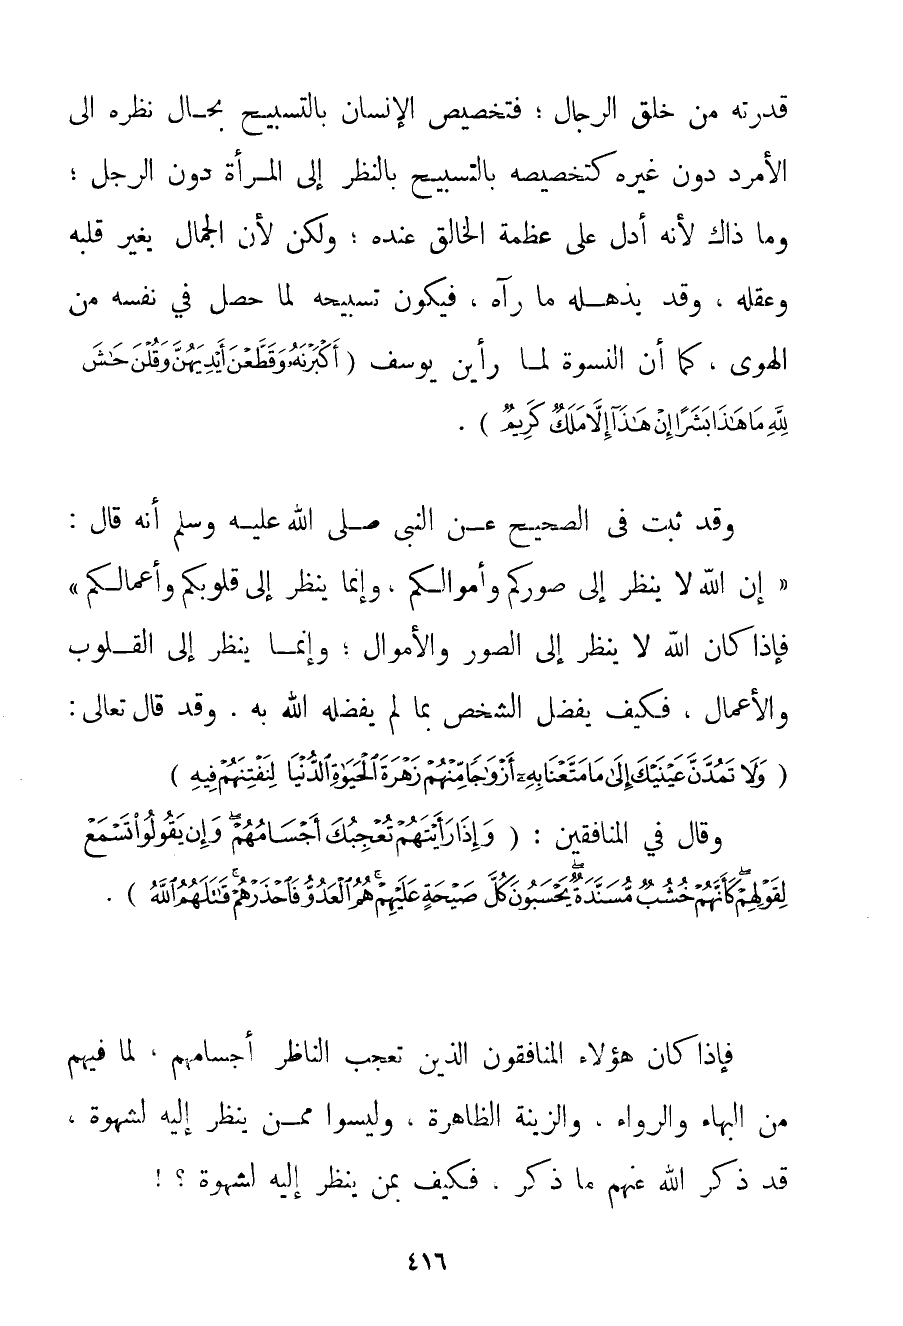 قدرته من خلق الرجال ؛ فتخصيص الإنسان بالتسبيح بحال نظره الى
الأمرد دون غيره كتخصيصه بالتسبيح بالنظر إلى المرأة دون الرجل ؛
وما ذاك لأنه أدل على عظمة الخالق عنده ؛ ولكن لأن الجمال يغير قلبه
وعقله ، وقد يذهله ما رآه ، فيكون تسبيحه لما حصل في نفسه من
الهوى ، كما أن النسوة لما رأين يوسف ( أَكْبَرْنَهُ وَقَطَّعْنَ أَيْدِيَهُنَّ وَقُلْنَ حَٰشَ
لِلَّهِ مَا هَٰذَا بَشَرًا إِنْ هَٰذَآ إِلَّا مَلَكٌ كَرِيمٌ ) .
وقد ثبت فى الصحيح عن النبى صلى الله عليه وسلم أنه قال :
« إن الله لا ينظر إلى صوركم وأموالكم ، وإنما ينظر إلى قلوبكم وأعمالكم »
فإذا كان الله لا ينظر إلى الصور والأموال ؛ وإنما ينظر إلى القلوب
والأعمال ، فكيف يفضل الشخص بما لم يفضله الله به . وقد قال تعالى :
( وَلَا تَمُدَّنَّ عَيْنَيْكَ إِلَىٰ مَا مَتَّعْنَا بِهِۦٓ أَزْوَٰجًا مِّنْهُمْ زَهْرَةَ ٱلْحَيَوٰةِ ٱلدُّنْيَا لِنَفْتِنَهُمْ فِيهِ )
وقال في المنافقين : ( وَإِذَا رَأَيْتَهُمْ تُعْجِبُكَ أَجْسَامُهُمْ ۖ وَإِن يَقُولُوا۟ تَسْمَعْ
لِقَوْلِهِمْ ۖ كَأَنَّهُمْ خُشُبٌ مُّسَنَّدَةٌ ۖ يَحْسَبُونَ كُلَّ صَيْحَةٍ عَلَيْهِمْ ۚ هُمُ ٱلْعَدُوُّ فَٱحْذَرْهُمْ ۚ قَٰتَلَهُمُ ٱللَّهُ ) .
فإذا كان هؤلاء المنافقون الذين تعجب الناظر أجسامهم ، لما فيهم
من البهاء والرواء ، والزينة الظاهرة ، وليسوا ممن ينظر إليه لشهوة ،
قد ذكر الله عنهم ما ذكر ، فكيف بمن ينظر إليه لشهوة ؟ !
٤١٦